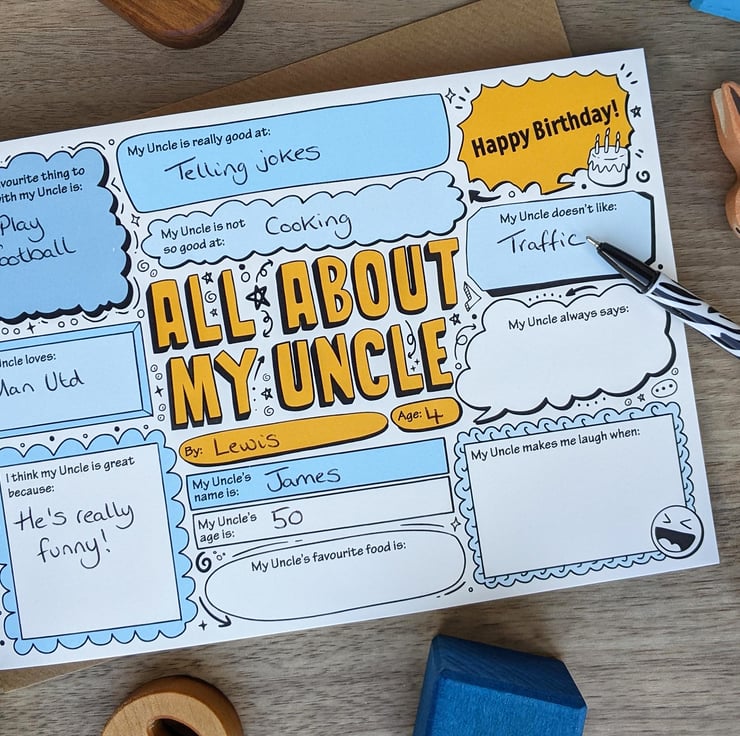 vourite thing to
with my Uncle is:
Play
ootball
My Uncle is really good at:
Telling jokes
My Uncle is not
so good at:
Cooking
Happy Birthday!
My Uncle doesn't like:
Traffic
ALL ABOUT
MY UNCLE
My Uncle always says:
ncle loves:
Man Utd
By: Lewis
Age: 4
I think my Uncle is great
because:
He's really
funny!
My Uncle's
name is:
James
My Uncle's
age is:
50
My Uncle's favourite food is:
My Uncle makes me laugh when: